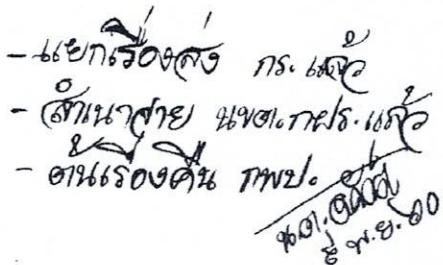 - แยกเรื่องส่ง กร. แล้ว
- สำเนาสาย นขต.กฝร. แล้ว
- ต้นเรื่องคืน กพป.
น.ต.
พ.ย. ๖๐